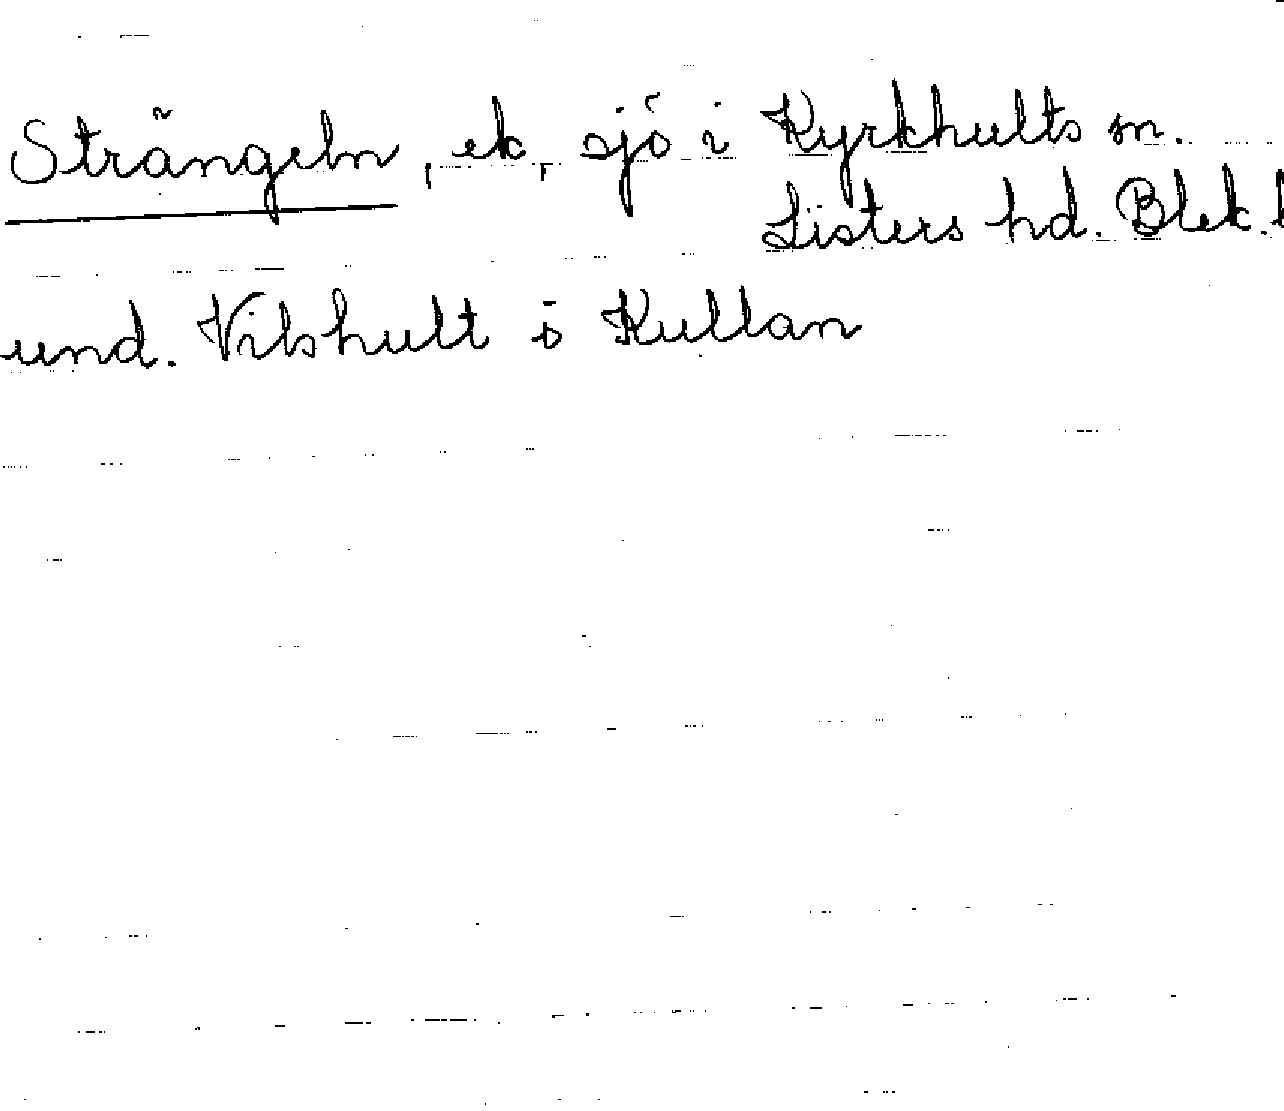 Strängeln, ek, sjö i Kyrkhults sn.
Listers hd. Blek. l
und. Vilshult ö Kullan